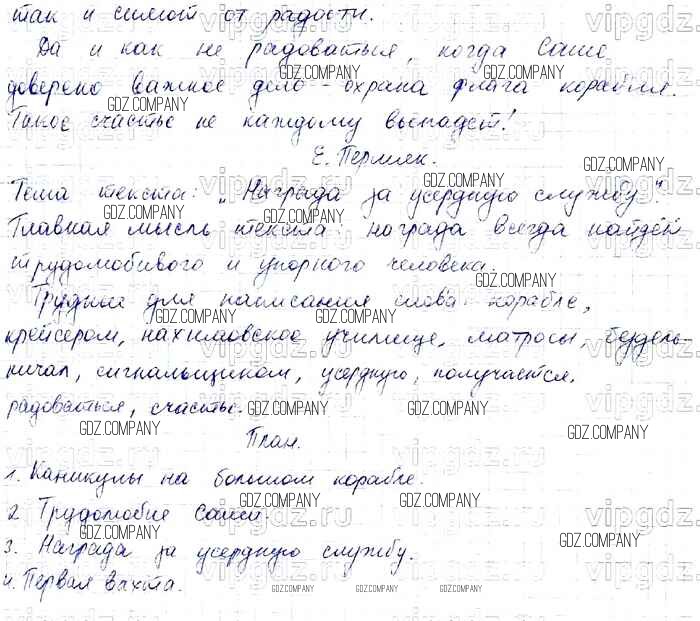 так и сияют от радости.
Да и как не радоваться, когда Саше
доверено важное дело - охрана флага корабля.
Такое счастье не каждому выпадет!
Е. Пермяк.
Тема текста: „Награда за усердную службу".
Главная мысль текста: награда всегда найдёт
трудолюбивого и упорного человека.
Трудные для написания слова: корабле,
крейсером, нахимовское училище, матросы, бездель-
ничал, сигнальщиком, усердную, получается,
радоваться, счастье.
План.
1. Каникулы на большом корабле.
2 Трудолюбие Саши.
3. Награда за усердную службу.
4. Первая вахта.
GDZ.COMPANY
vipgdz.ru